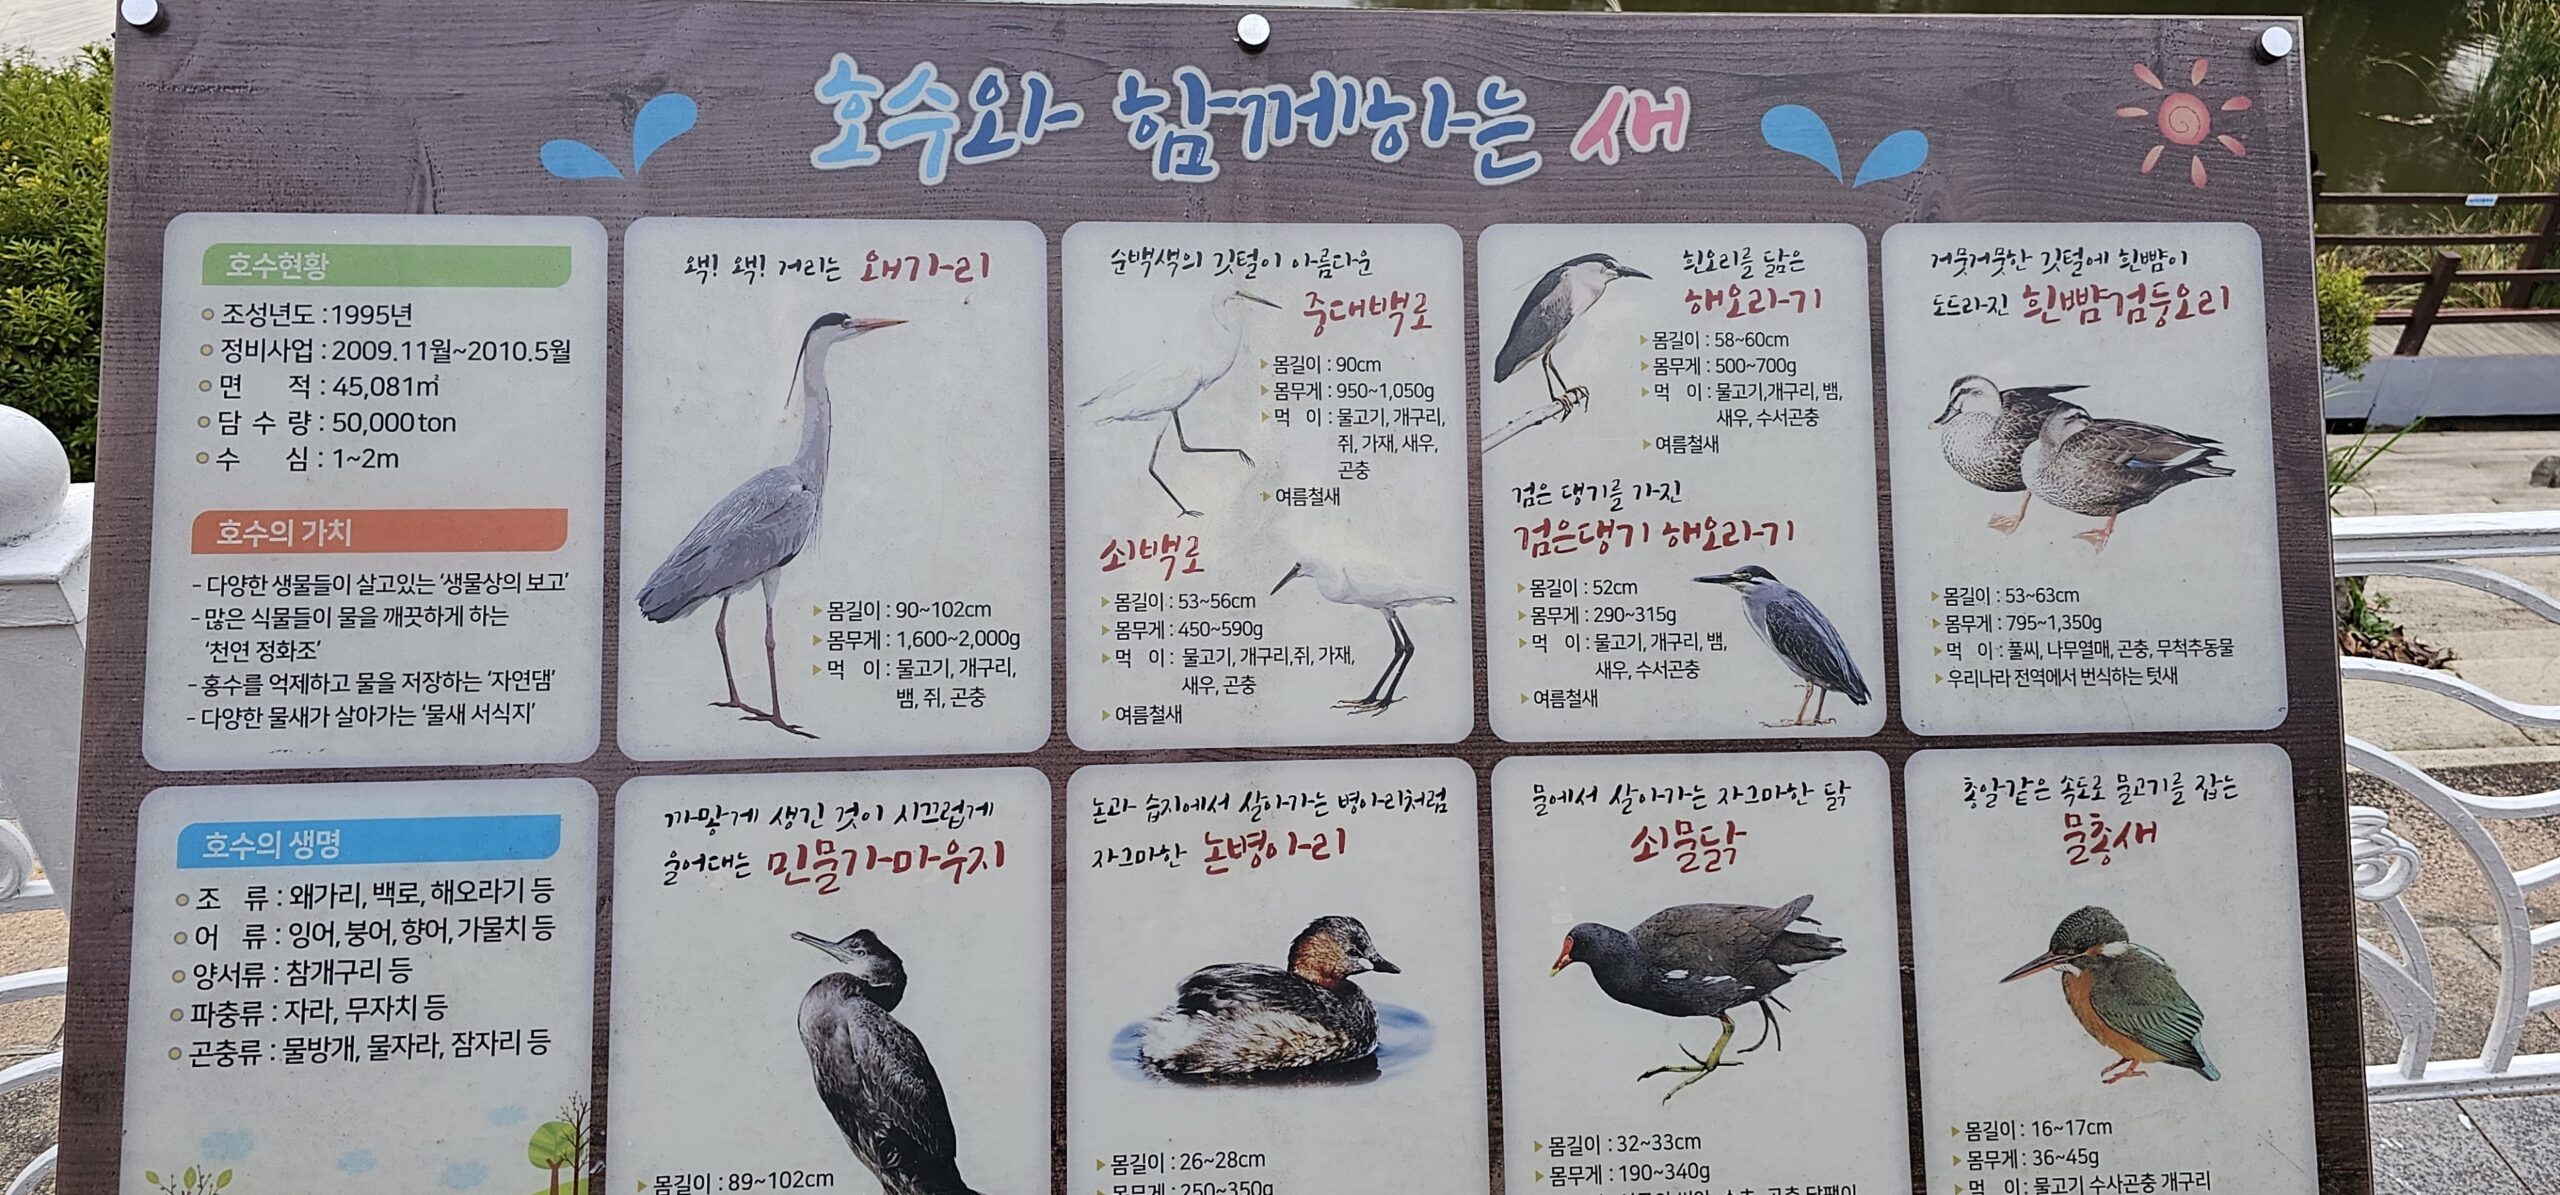 호수와 함께하는 새
호수현황
조성년도 : 1995년
정비사업 : 2009.11월~2010.5월
면 적 : 45,081㎡
담 수 량 : 50,000 ton
수 심 : 1~2m
호수의 가치
- 다양한 생물들이 살고있는 '생물상의 보고'
- 많은 식물들이 물을 깨끗하게 하는
'천연 정화조'
- 홍수를 억제하고 물을 저장하는 '자연댐'
- 다양한 물새가 살아가는 '물새 서식지'
왝! 왝! 거리는 왜가리
몸길이 : 90~102cm
몸무게 : 1,600~2,000g
먹 이 : 물고기, 개구리,
뱀, 쥐, 곤충
순백색의 깃털이 아름다운
중대백로
몸길이 : 90cm
몸무게 : 950~1,050g
먹 이 : 물고기, 개구리,
쥐, 가재, 새우,
곤충
여름철새
쇠백로
몸길이 : 53~56cm
몸무게 : 450~590g
먹 이 : 물고기, 개구리,쥐, 가재,
새우, 곤충
여름철새
흰오리를 닮은
해오라기
몸길이 : 58~60cm
몸무게 : 500~700g
먹 이 : 물고기,개구리, 뱀,
새우, 수서곤충
여름철새
검은 댕기를 가진
검은댕기 해오라기
몸길이 : 52cm
몸무게 : 290~315g
먹 이 : 물고기, 개구리, 뱀,
새우, 수서곤충
여름철새
거뭇거뭇한 깃털에 흰뺨이
도드라진 흰뺨검둥오리
몸길이 : 53~63cm
몸무게 : 795~1,350g
먹 이 : 풀씨, 나무열매, 곤충, 무척추동물
우리나라 전역에서 번식하는 텃새
호수의 생명
조 류 : 왜가리, 백로, 해오라기 등
어 류 : 잉어, 붕어, 향어, 가물치 등
양서류 : 참개구리 등
파충류 : 자라, 무자치 등
곤충류 : 물방개, 물자라, 잠자리 등
까맣게 생긴 것이 시끄럽게
울어대는 민물가마우지
몸길이 : 89~102cm
논과 습지에서 살아가는 병아리처럼
자그마한 논병아리
몸길이 : 26~28cm
몸무게 : 250~350g
물에서 살아가는 자그마한 닭
쇠물닭
몸길이 : 32~33cm
몸무게 : 190~340g
총알같은 속도로 물고기를 잡는
물총새
몸길이 : 16~17cm
몸무게 : 36~45g
먹 이 : 물고기 수사곤충 개구리